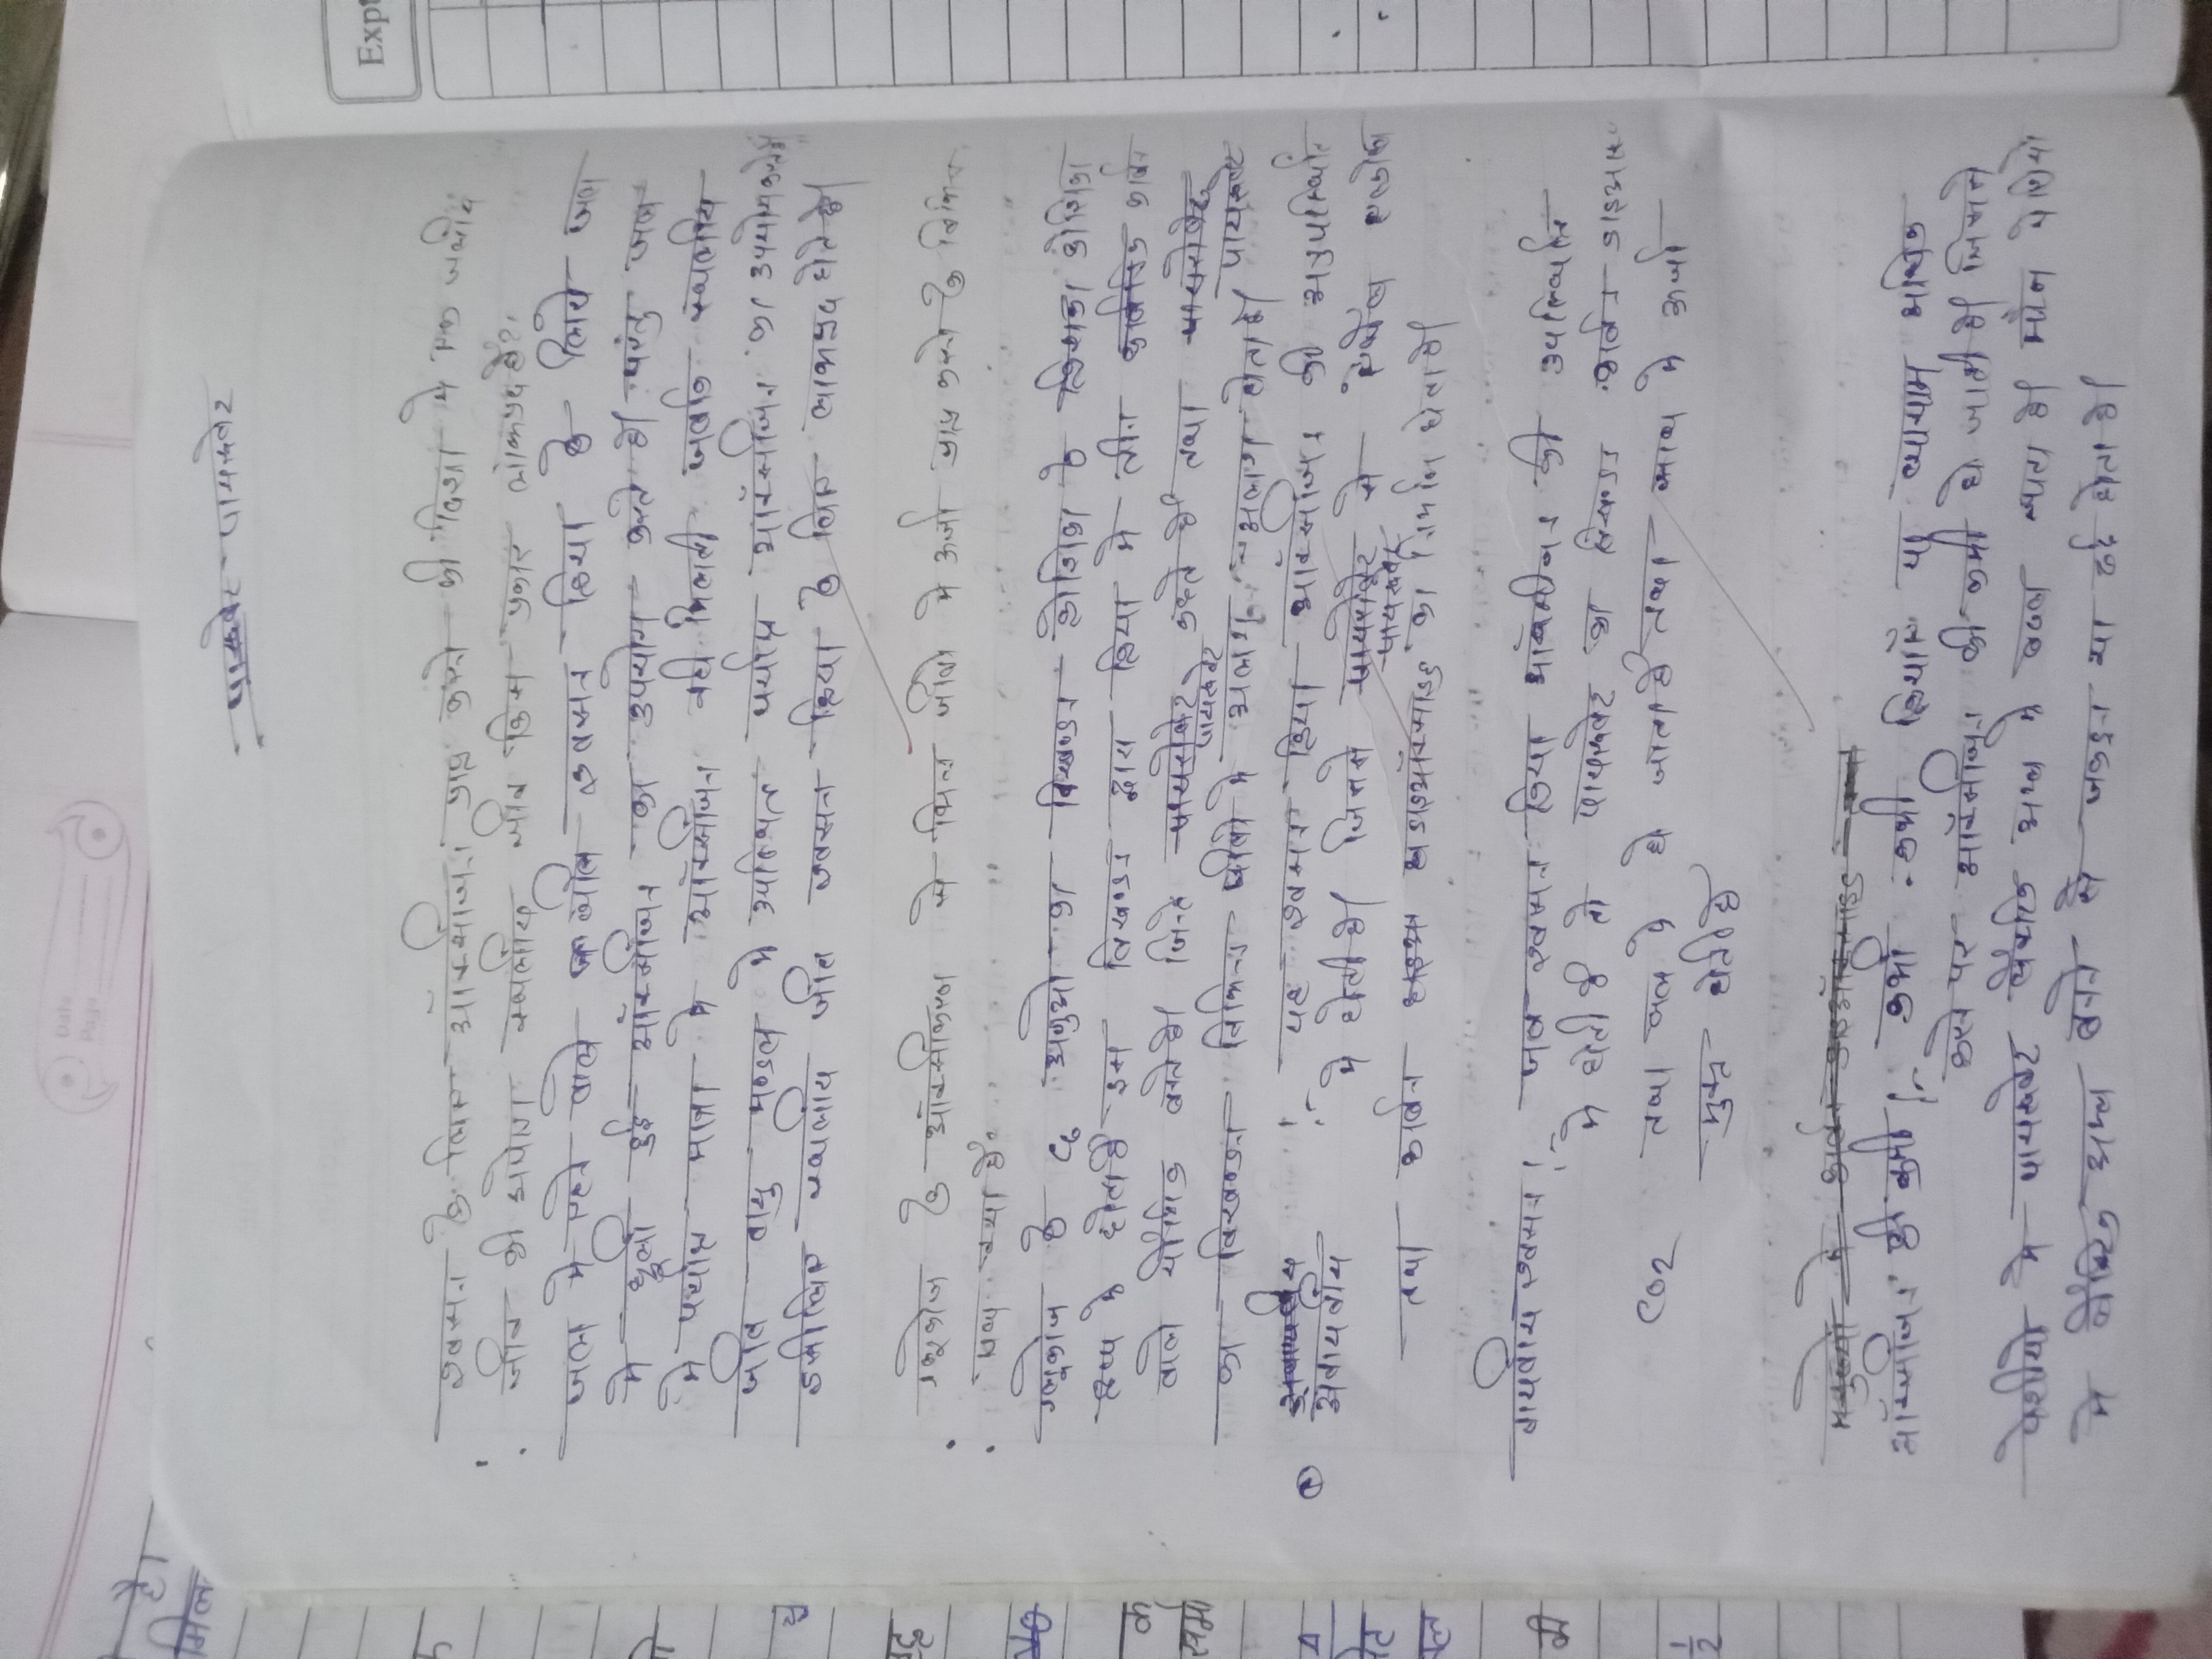 पायरूवेट
श्वसन के लिए ऑक्सीजन प्राप्त करने की दिशा मे एक जलीय
जीव की अपेक्षा स्थलीय जीव किस प्रकार लाभप्रद है?
जल मे रहने वाले श्वसन क्रिया के लिये जल
मे घूली हुई ऑक्सीजन का उपयोग करते है। परंतु जल
मे पर्याप्त मात्रा मे ऑक्सीजन नही मिलती जबकि स्थलीय
जीव वायु मण्डल मे उपस्थित पर्याप्त ऑक्सीजन का उपयोग करते है
इसीलिए स्थलीय जीव श्वसन क्रिया के लिए लाभप्रद होते है।
ग्लूकोज के ऑक्सीकरण से भिन्न जीवो मे ऊर्जा प्राप्त करने के विभिन्न
पथ क्या है।
ग्लूकोज के C6 अणुओ का विखण्डन कोशिका के कोशिका
द्रव्य मे होता है इस विखण्डन द्वारा क्रिया मे तीन कार्बनिक कार्बन
वाले यौगिक बनते है। जिन्हे पायरूवेट कहते है तथा पायरूवेट
का विखण्डन विभिन्न जीवो मे अलग-अलग होता है।
अवायवीय :- यह श्वसन क्रिया ऑक्सीजन की अनुपस्थिति
मे होती है। जिसमे पायरूवेट से एथेल एल्कोहल
तथा कार्बन डाइऑक्साइड का निर्माण होता है।
वायवीय श्वसन :- जब श्वसन क्रिया ऑक्सीजन की उपस्थिति
मे होती है तो पायरूवेट का विखण्डन कार्बन डाइआक्
CO2 तथा जल मे हो जाता है तथा साथ मे ऊर्जा
मुक्त होती है
मनुष्यो मे कार्बन डाइऑक्साइड तथा
ऑक्सीजन की कमी :- कभी-कभी क्रियाऍ या व्यायाम अधिक
करने पर ऑक्सीजन की कमी हो जाती है। जिससे
पेशीयो मे पायरूवेट लैक्टिक अम्ल मे बदल जाता है। पेशियो
मे लैक्टिक अम्ल बनने से जकड़न या दर्द होता है।
Expt
है।
मिल
क
1/2